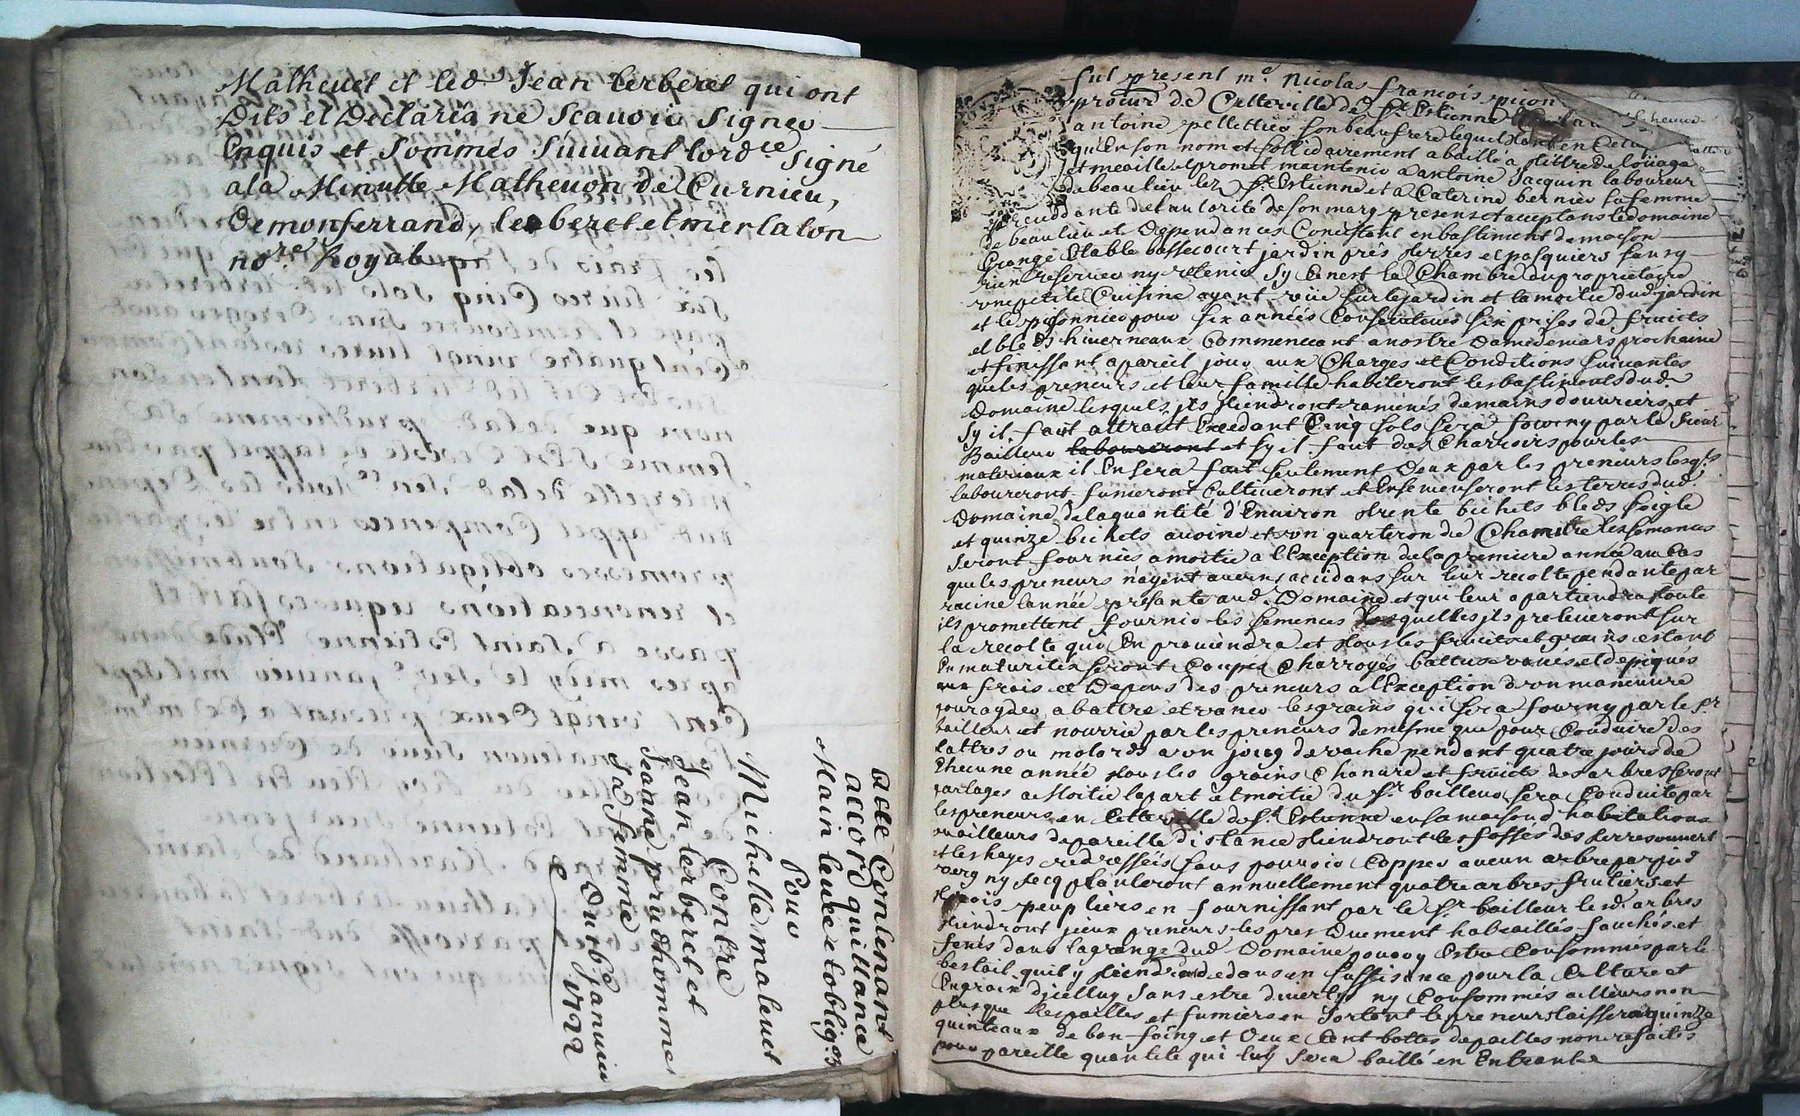 Matheuet et led. Jean terberet qui ont
Dits et Declarés ne Scauoir Signer
Enquis et Sommés Suiuant lord.ce Signé
a la Minutte Matheuon de Curnieu,
Demonferrand, terberet et merlaton
no.re Royal
acte Contenant
accord quittance
Main leuée et oblig.on
Pour
Michelle maleuet
Contre
Jean terberet et
Jeanne prudhomme
Sa femme
Du 16e Januier
1722
fut present m.e Nicolas francois pion
procur.r de Cette ville de St Estienne
antoine pellettier son beaufrere lequel
qu En son nom et sollidairement a baillé a tiltre de loüage
et meaille et promet maintenir a antoine Jacquin laboureur
de beaulieu lez St Estienne et a Caterine bernier sa femme
procedante de l'autorité de son mary presens et aceptans le domaine
de beaulieu et Dependances Consistant en bastiment de maison
Grange Etable bassecourt jardin prés terres et pasquiers sans y
rien reserver ny retenir Sy Ce nest la Chambre du proprietaire
vne petite Cuisine ayant vüe sur le jardin et la moitié dud. jardin
et le pigonnier pour six années Consecutiues six prises de fruicts
et bleds hiuerneaux Commencant a nostre Dame de mars prochaine
et finissant a pareil jour aux Charges et Conditions suiuantes
que les preneurs et leur famille habiteront les bastiments dud.
Domaine lesquels ils tiendront ramenés de mains d'ouuriers et
sy il faut attrait Excedant Cinq sols sera fourny par le sieur
Bailleur laboureront et sy il faut des Charroirs pour les
materiaux il En sera fait seulement Deux par les preneurs lesq.ls
laboureront fumeront Cultiueront et Ensemenseront les terres dud.
Domaine de la quantité d'Enuiron trente bichets bleds seigle
et quinze bichets auoine et un quarteron de Chanure les semances
seront fournies a moitié a l'Exception de la premiere année au Cas
que les preneurs n'ayent aucuns accidans sur leur recolte pendante par
racine l'année presante aud. Domaine et qui leur apartiendra toute
ils promettent fournir les semences lesquelles ils preleueront sur
la recolte qui En prouiendra et tous les fruicts et grains estant
En maturités seront Coupés Charroyés battus vanés et depiqués
aux frais et Depens des preneurs a l'Exception d'vn maneuure
pour ayder a battre et vaner les grains qui sera fourny par le Sr
bailleur et nourrie par les preneurs de mesme que pour Conduire des
lattres ou molords a vn jocq de vache pendant quatre jours de
Chacune année tous les grains Chanure et fruicts des arbres seront
partages a Moitie la part et moitié du Sr bailleur sera Conduite par
les preneurs en Cette ville de St Estienne en sa maison d'habitation
ou ailleurs de pareille distance tiendront les fossés des terres ouuert
et les hayes redressées sans pouuoir Copper aucun arbre par pied
verg ny secq planteront annuellement quatre arbres fruitiers et
trois peupliers en fournissant par le Sr bailleur lesd. arbres
tiendront iceux preneurs les pres Duement habeaillés fauchés et
fenés dans la grange dud. Domaine pour y Estre Consommés par le
bestail quil y tiendra dedans en suffisance pour la Culture et
Engrain d'icelluy sans estre diuertis ny Consommés ailleurs non
plus que les pailles et fumiers en sortant le preneur laissera quinze
quinteaux de bon foing et Deux Cent bottes de pailles non refaites
pour pareille quantité qui luy sera baillé en Entrant